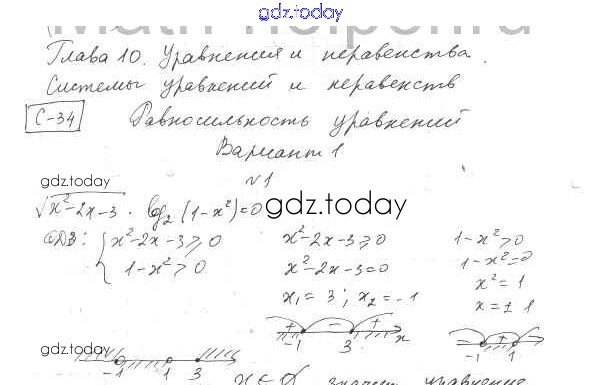 gdz.today
Глава 10. Уравнения и неравенства.
Системы уравнений и неравенств
С-34 Равносильность уравнений
Вариант 1
№1
gdz.today
√x²-2x-3 · log₂(1-x²)=0 gdz.today
ОДЗ: { x²-2x-3≥0 x²-2x-3≥0 1-x²>0
1-x²>0 x²-2x-3=0 1-x²=0
x₁=3; x₂=-1 x²=1
x=±1
+ - + x
-1 3 -1 1
gdz.today
-1 1 3
x∈∅ значит уравнение